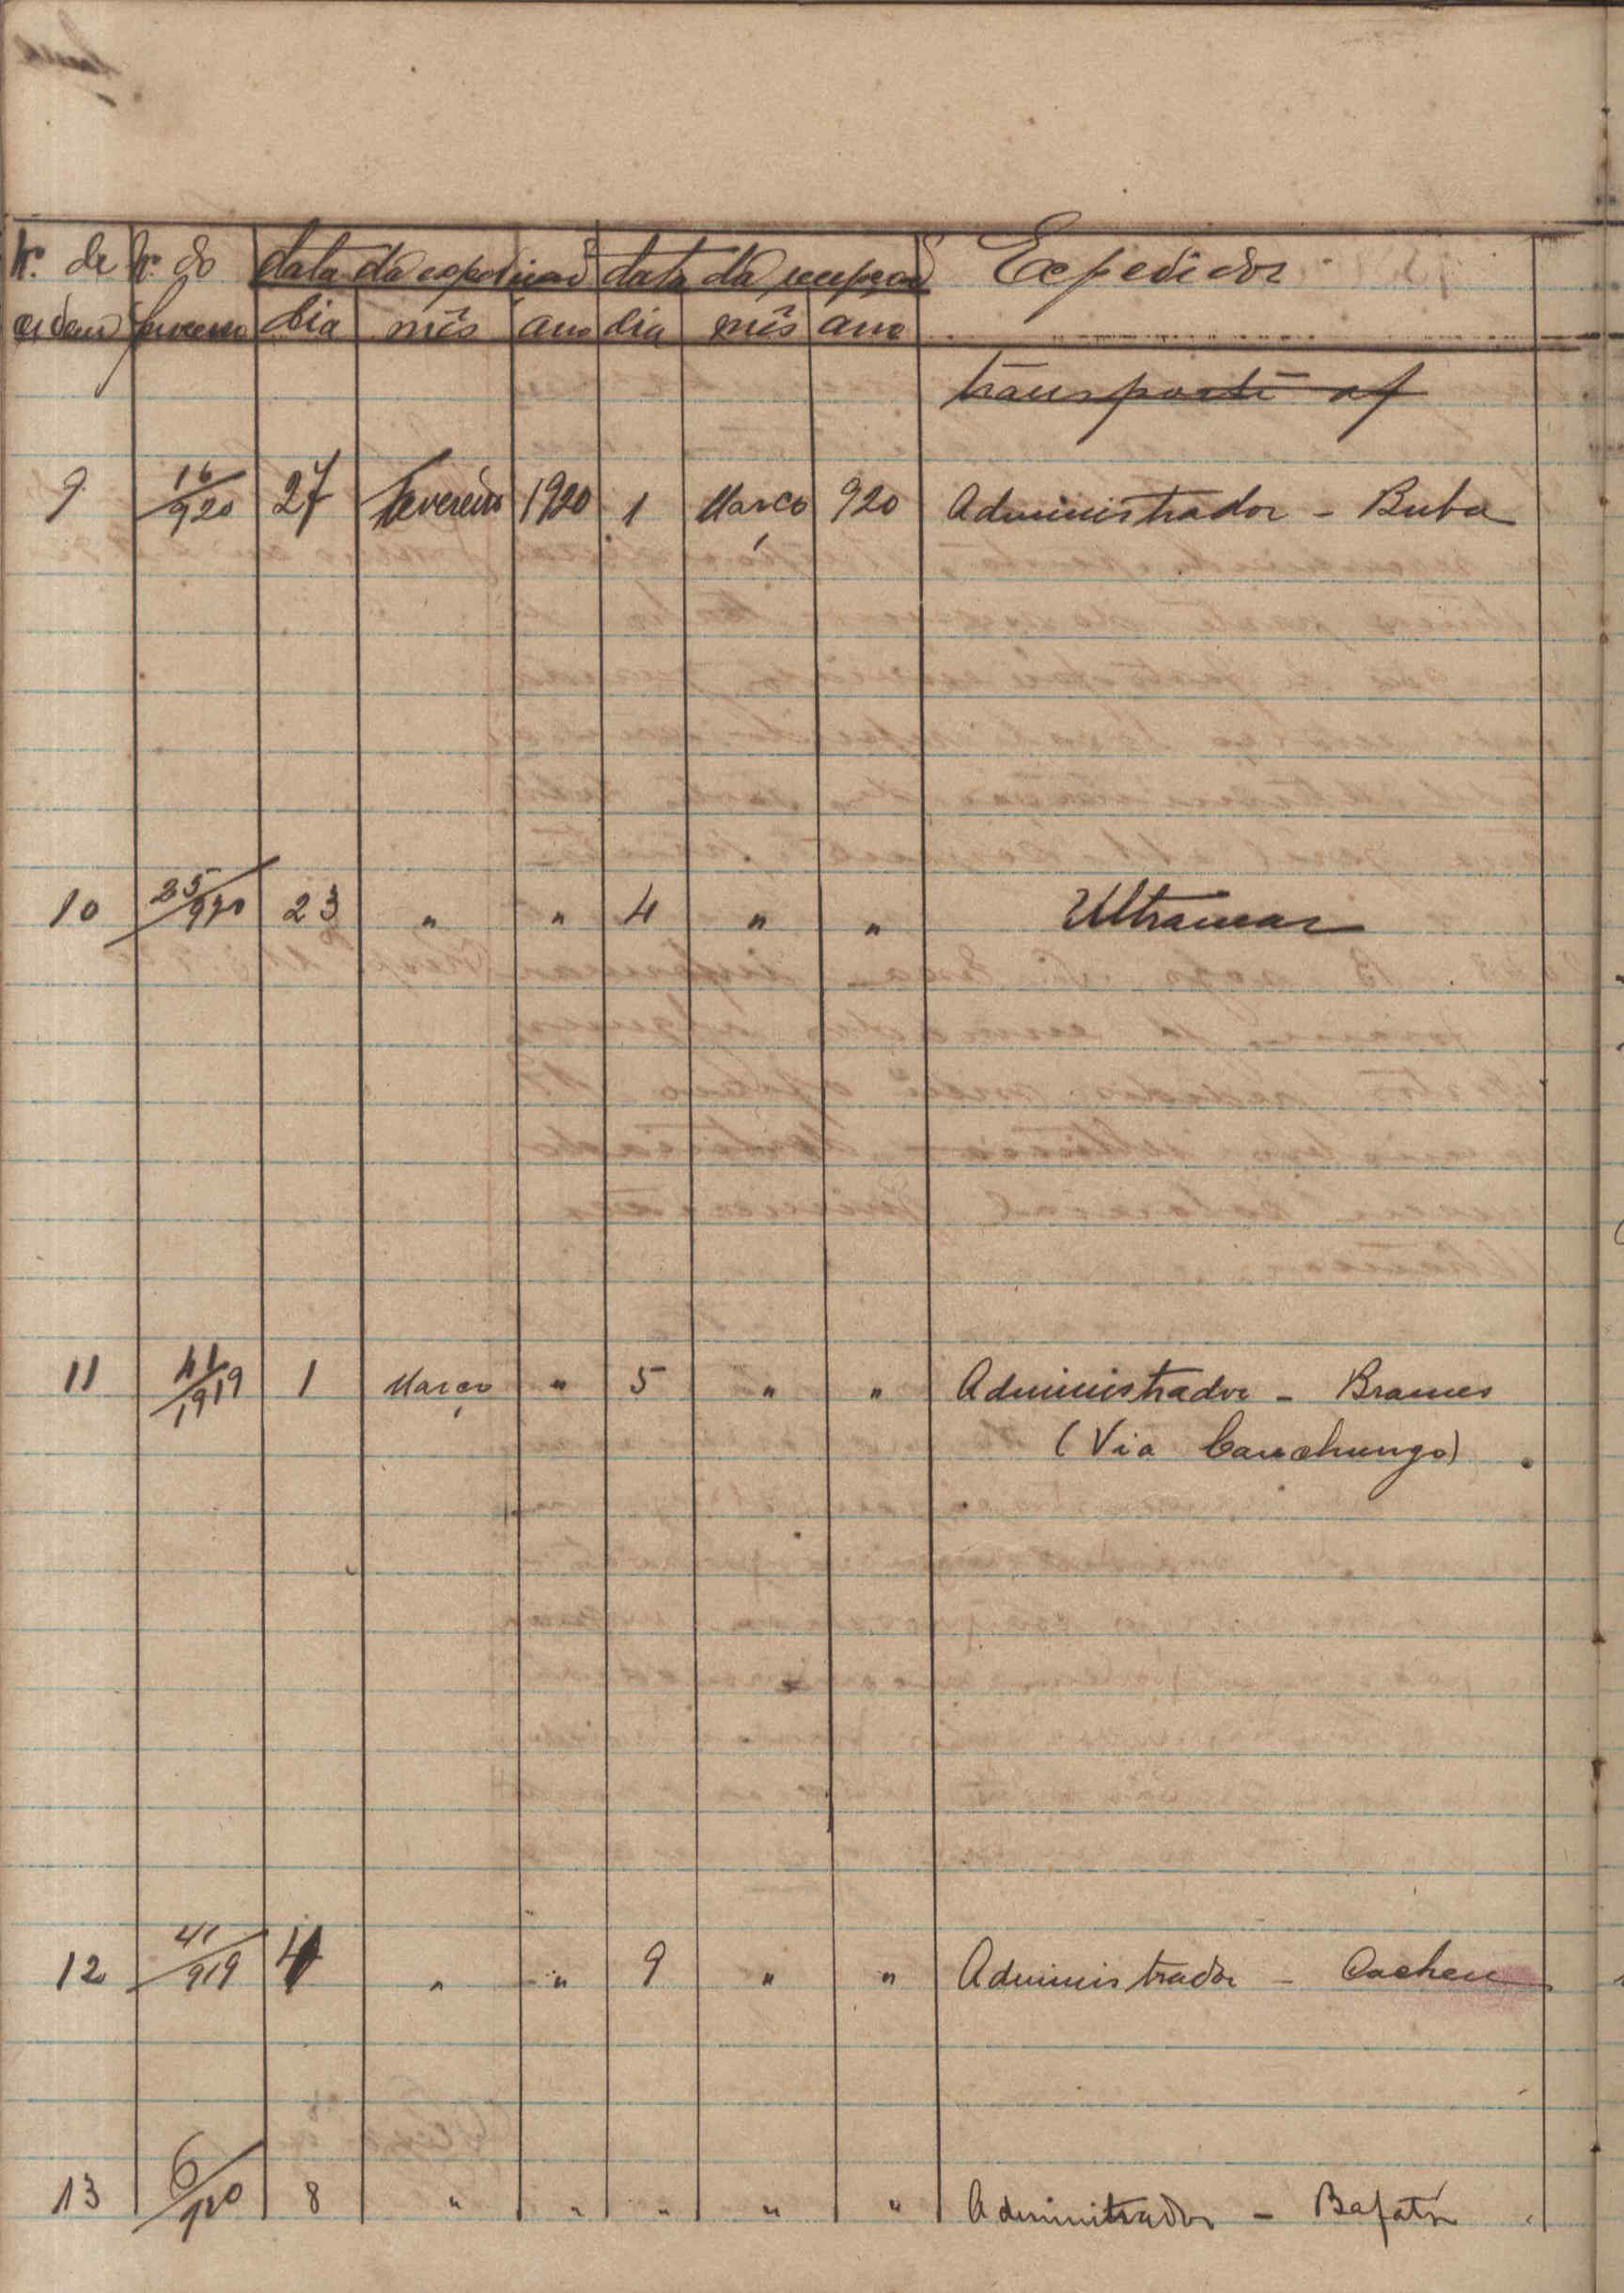 Nr. de Nr. do data da expedição data da recepção Expedidor
ordem processo dia mês ano dia mês ano
transporte af
9 16/920 27 Fevereiro 1920 1 Março 920 Administrador - Buba
10 25/920 23 " " 4 " " Ultramar
11 41/1919 1 Março " 5 " " Administrador - Brames
(Via Canchungo)
12 41/919 4 " " 9 " " Administrador - Cacheu
13 6/920 8 " " " " " Administrador - Bafatá